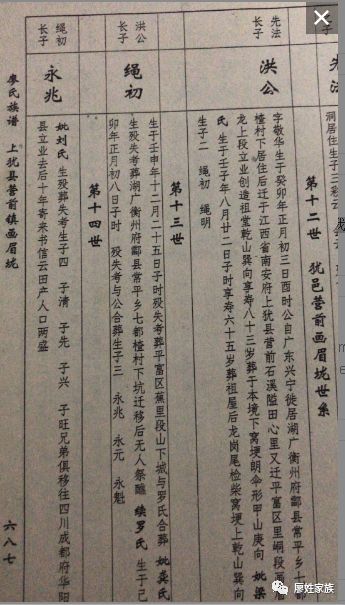 洞居住生子三
第十二世 犹邑营前画眉垅世系
先法
长子
洪公
字敬华生于癸卯年正月初三日酉时公自广东兴宁徙居湖广衡州府酃县常平乡七都
楂村下居住后迁于江西省南安府上犹县营前石溪隘田心里又迁平富区里峒段画眉
龙上段立业创造祖堂乾山巽向享寿八十三岁葬于本境下窝埂朗伞形甲山庚向 妣梁
氏 生于壬子年八月廿二日子时享寿六十五岁葬祖屋后龙岗尾检柴窝埂上乾山巽向
生子二 绳初 绳明
第十三世
洪公
长子
绳初
生于壬申年十二月二十五日子时殁失考葬平富区蕉里段山下城与罗氏合葬 妣龚氏
生殁失考葬湖广衡州府酃县常平乡七都楂村下坑迁移后无人祭醮 续罗氏 生于己
卯年正月初八日子时 殁失考与公合葬生子三 永兆 永元 永魁
第十四世
绳初
长子
永兆
妣刘氏 生殁葬失考生子四 子清 子先 子兴 子旺兄弟俱移往四川成都府华阳
县立业去后十年寄来书信云田产人口两盛
廖氏族谱 上犹县营前镇画眉垅 六八七
廖姓家族